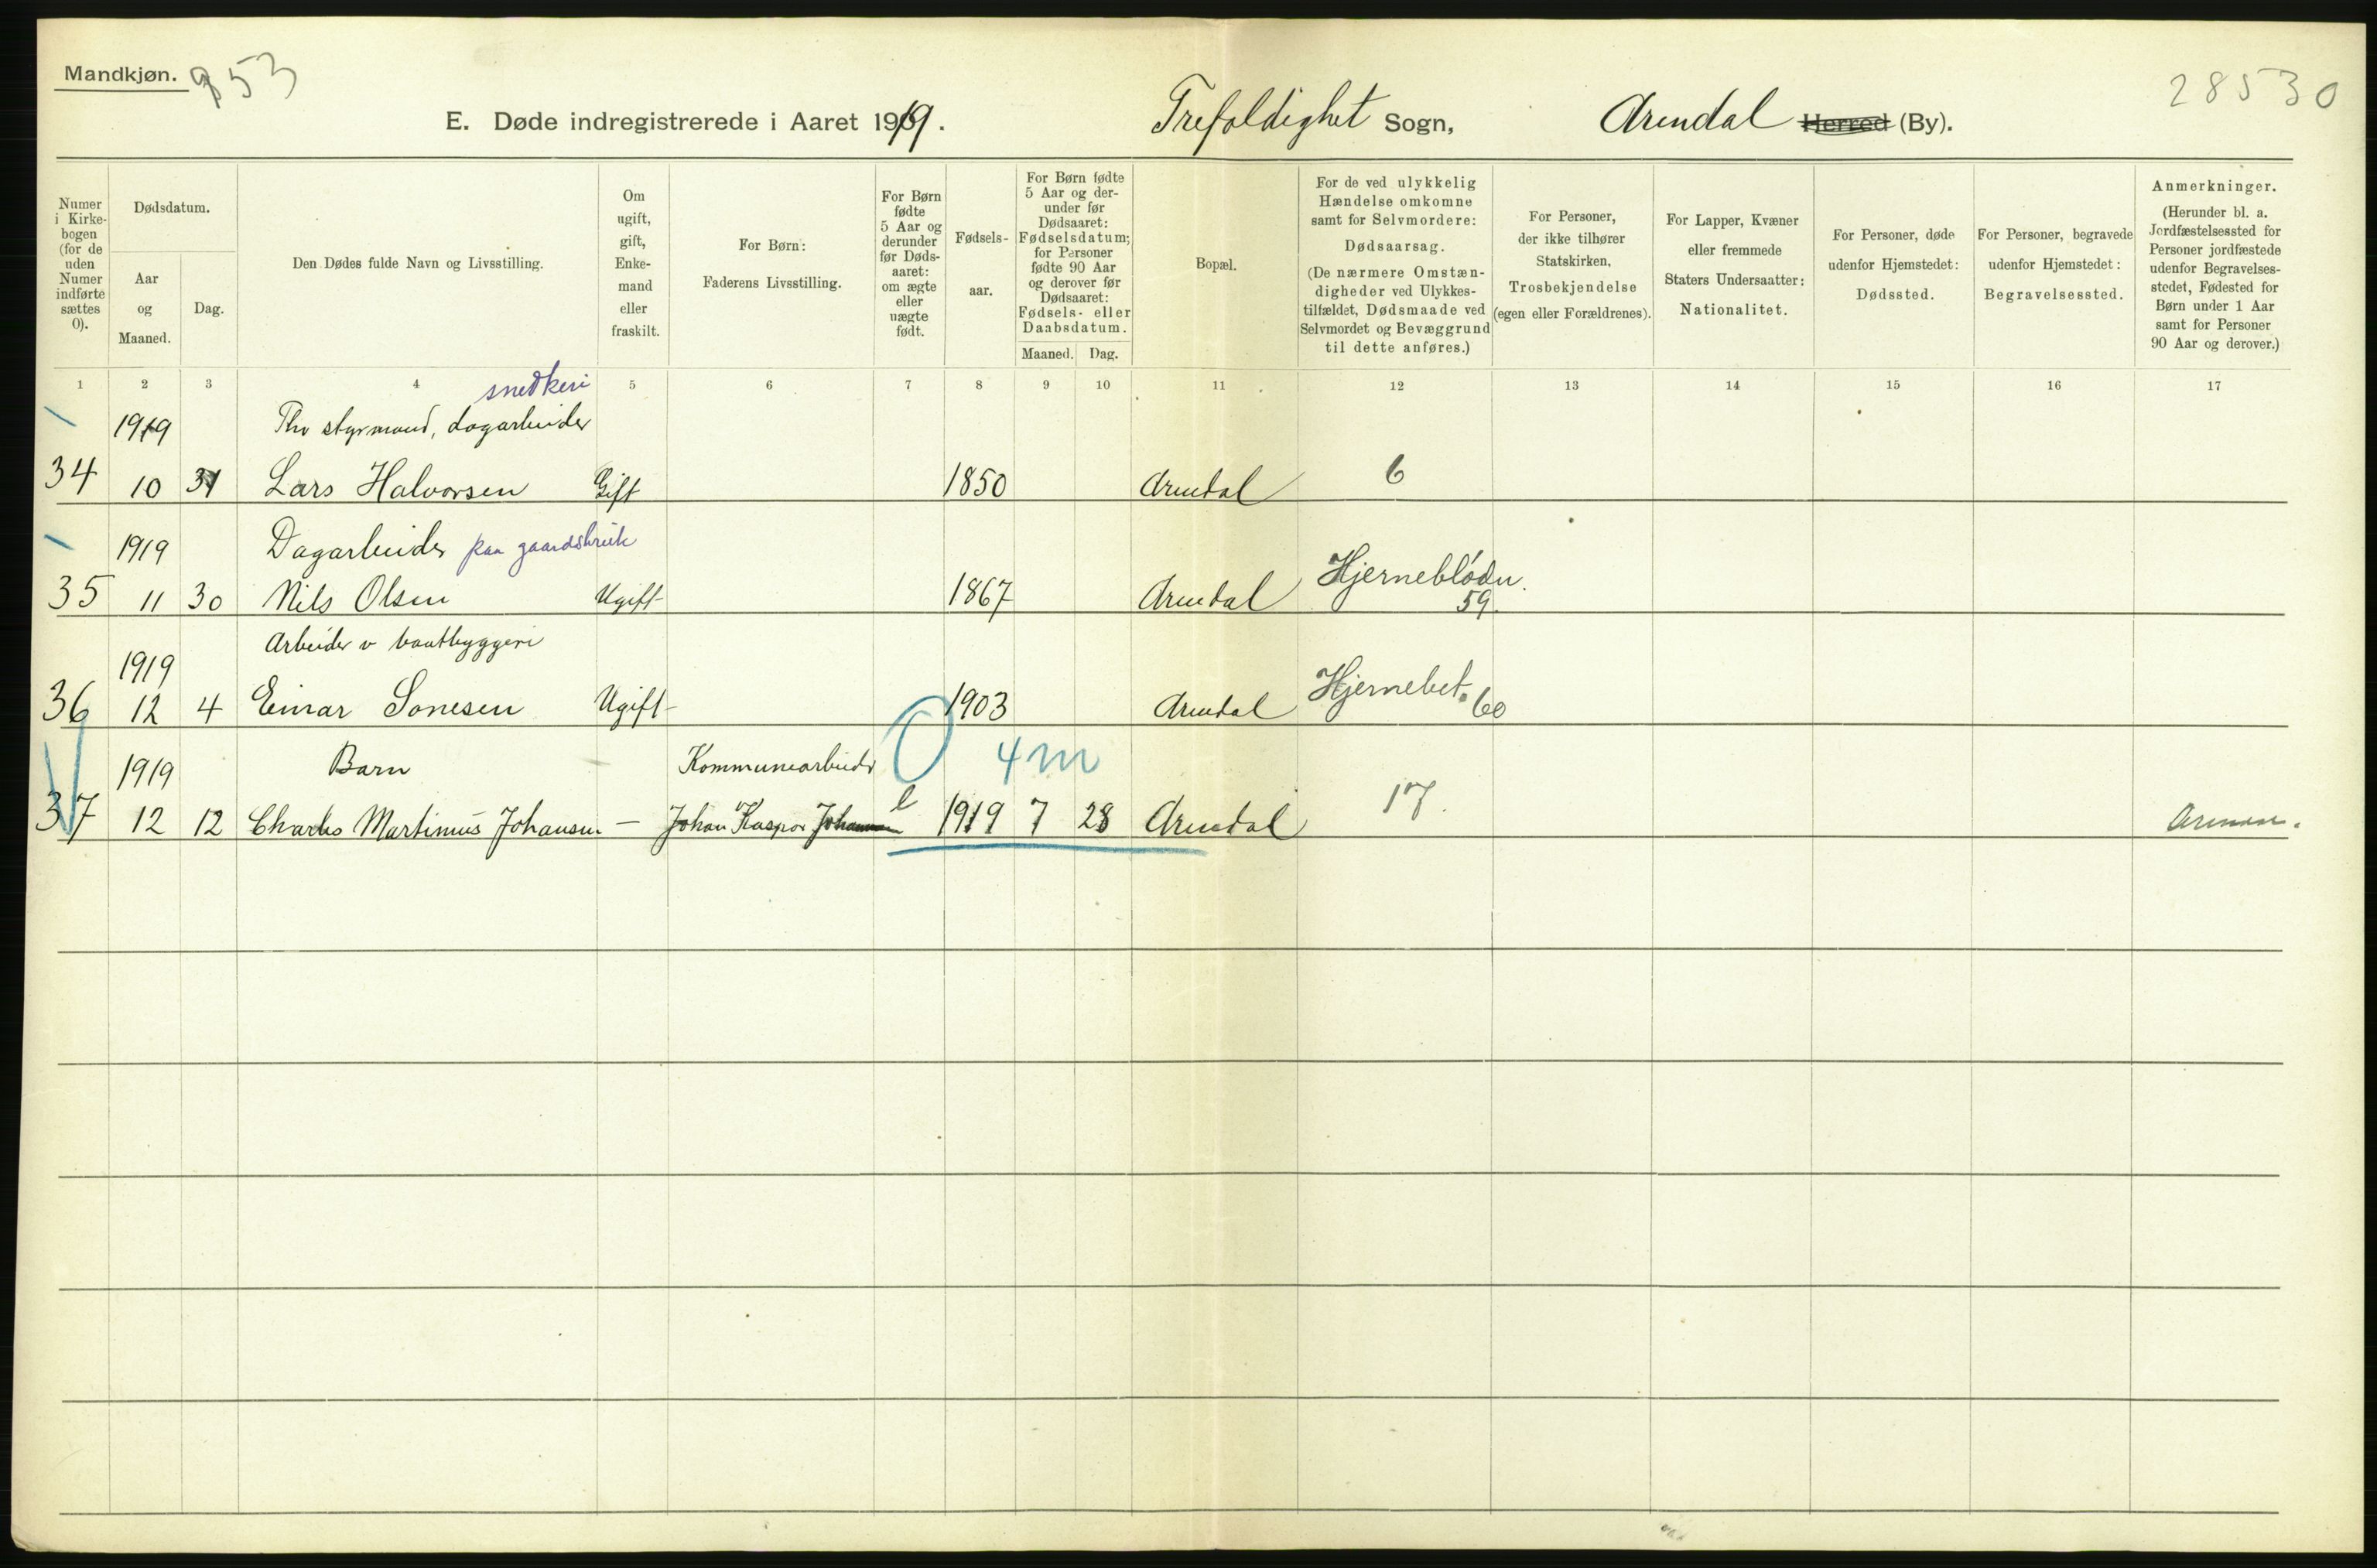 Mandkjøn. 953
28530
E. Døde indregistrerede i Aaret 1919.
Trefoldighet Sogn, Arendal Herred (By).
Numer i Kirkebogen (for de uden Numer indførte sættes 0).
Dødsdatum.
Aar og Maaned.
Dag.
Den Dødes fulde Navn og Livsstilling.
Om ugift, gift, Enkemand eller fraskilt.
For Børn: Faderens Livsstilling.
For Børn fødte 5 Aar og derunder før Dødsaaret: om ægte eller uægte født.
Fødselsaar.
For Børn fødte 5 Aar og derunder før Dødsaaret: Fødselsdatum; for Personer fødte 90 Aar og derover før Dødsaaret: Fødsels- eller Daabsdatum.
Maaned. Dag.
Bopæl.
For de ved ulykkelig Hændelse omkomne samt for Selvmordere: Dødsaarsag. (De nærmere Omstændigheder ved Ulykkestilfældet, Dødsmaade ved Selvmordet og Bevæggrund til dette anføres.)
For Personer, der ikke tilhører Statskirken, Trosbekjendelse (egen eller Forældrenes).
For Lapper, Kvæner eller fremmede Staters Undersaatter: Nationalitet.
For Personer, døde udenfor Hjemstedet: Dødssted.
For Personer, begravede udenfor Hjemstedet: Begravelsessted.
Anmerkninger. (Herunder bl. a. Jordfæstelsessted for Personer jordfæstede udenfor Begravelsesstedet, Fødested for Børn under 1 Aar samt for Personer 90 Aar og derover.)
1 2 3 4 5 6 7 8 9 10 11 12 13 14 15 16 17
snedkeri
1919 styrmand, dagarbeider
34 10 31 Lars Halvorsen Gift 1850 Arendal 6
1919 Dagarbeider paa gaardsbruk
35 11 30 Nils Olsen Ugift 1867 Arendal Hjerneblødn. 59.
1919 Arbeider v baatbyggeri
36 12 4 Einar Sonesen Ugift 1903 Arendal Hjernebet. 60
1919 Barn Kommunearbeider 0 4 m
37 12 12 Charles Martinius Johansen — Johan Kaspar Johansen 1919 7 28 Arendal 17.